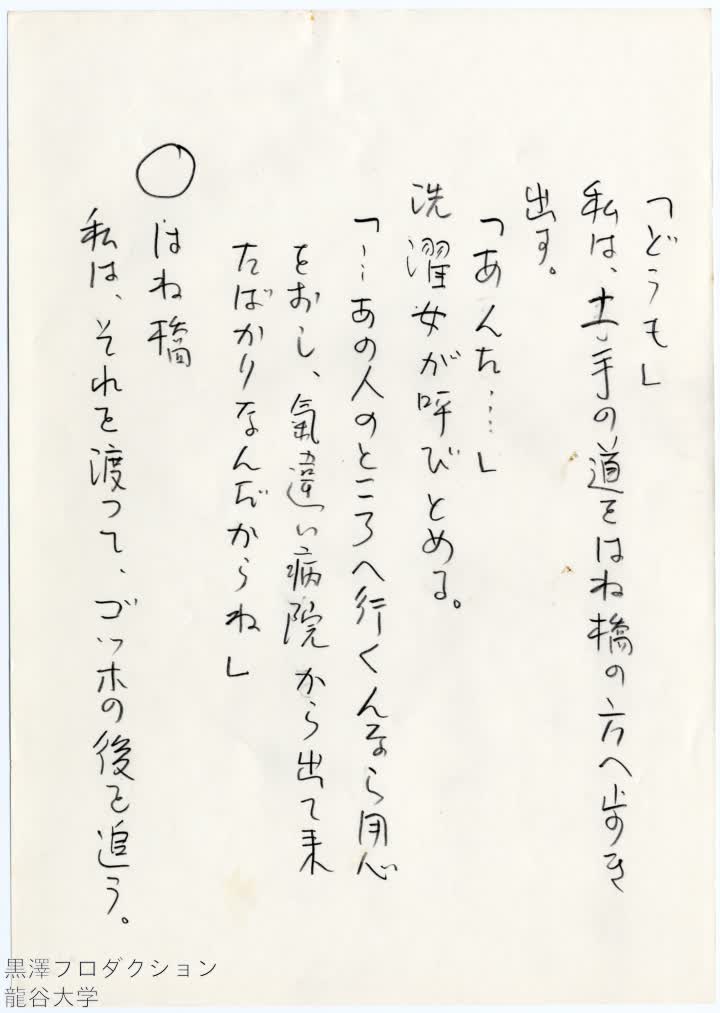 「どうも」
私は、土手の道をはね橋の方へ歩き
出す。
「あんた…」
洗濯女が呼びとめる。
「…あの人のところへ行くんなら用心
をおし、氣違い病院から出て来
たばかりなんだからね」
○はね橋
私は、それを渡って、ゴッホの後を追う。
黒澤プロダクション
龍谷大学